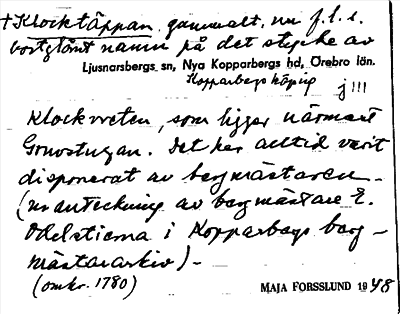 † Klocktäppan, gammalt, nu f.l.s.
bortglömt namn på det stycke av
Ljusnarsbergs sn, Nya Kopparbergs hd, Örebro län.
Kopparbergs köping
j!!!
Klockvreten, som ligger närmast
Gruvstugan. Det har alltid varit
disponerat av bergmästaren –
(ur anteckning av bergmästare E.
Odelstierna i Kopparbergs berg-
mästararkiv) –
(omkr. 1780)
MAJA FORSSLUND 1948